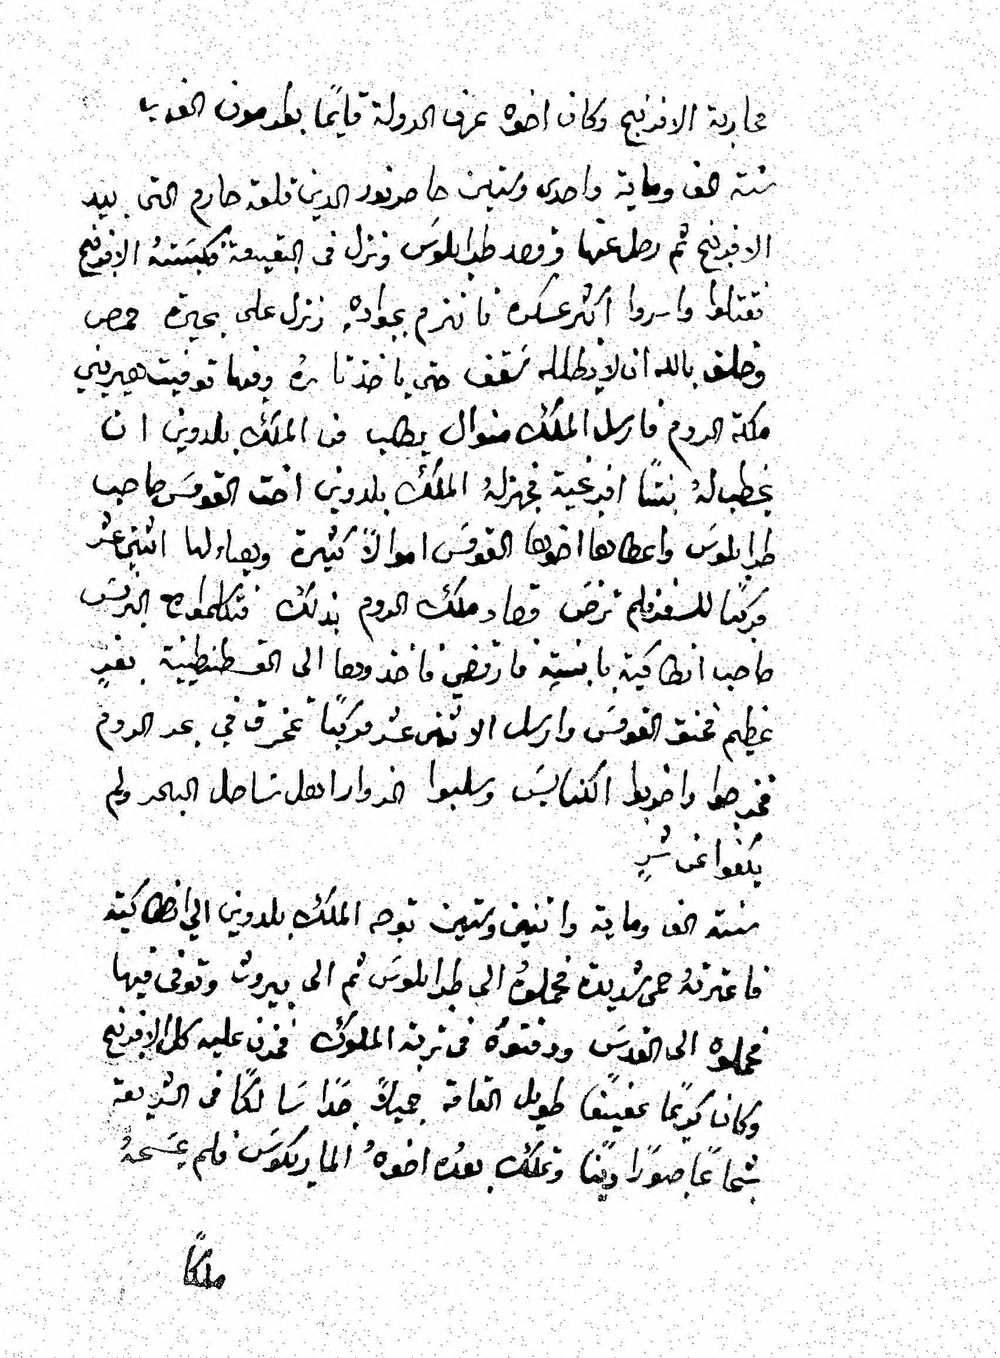 محاربة الافرنج وكان اخوه عرف الدولة قايمًا بطرمون الغرب
سنة الف وماية واحدى وستين حاصر نور الدين قلعة حارم التى بيد
الافرنج ثم رحل عنها وقصد طرابلوس ونزل فى البقيعة فكبسته الافرنج
فقتلوا واسروا اكثر عسكره فانهزم بجواده ونزل على بحيرة حمص
وحلف بالله ان لا يظلله سقف حتى ياخذ تاره وفيها توفيت هيريني
ملكة الروم فارسل الملك منوال يطلب من الملك بلدوين ان
يخطب له بنتًا افرنجية فجهز له الملك بلدوين اخت القومس صاحب
طرابلوس واعطاها اخوها القومس اموالاً كثيرة وهيا لها اثنى عشر
مركبًا للسفر فلم ترضَ قصاد ملك الروم بذلك فتكلموا مع البرنس
صاحب انطاكية بابنته فارتضى فاخذوها الى القسطنطينية بفرح
عظيم فحنق القومس وارسل الاثنى عشر مركبًا تخرق في بحر الروم
فخرجوا واخربوا الكنايس وسلبوا الزوار اهل ساحل البحر ولم
يكفوا عن شرٍ
سنة الف وماية واثنين وستين توجه الملك بلدوين الى انطاكية
فاعترته حمى شديدة فحملوه الى طرابلوس ثم الى بيروت وتوفى فيها
فحملوه الى القدس ودفنوه فى تربة الملوك فحزن عليه كل الافرنج
وكان كريمًا عفيفًا طويل القامة جميلاً جدًا سالكًا فى الشريعة
شجاعًا صبورًا دينًا وتملك بعده اخوه الماريكوس فلم يمسحهُ
ملكًا